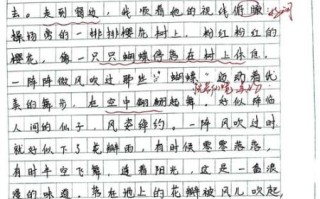 去。走到湖边，我顺着他的视线俯瞰
蝶翅旁的一排排樱花树上，粉红粉红的
樱花，像一只只蝴蝶停落在树上休息，
一阵阵微风吹过那些"蝴蝶"迈动着优
美的舞步，在空中翩翩起舞，好似降临
人间的仙子，风姿绰约。一阵风吹过时
就好似下了花瓣雨，有时候零零落落，
有时半空飞舞，透着阳光，这是一番浪
漫的味道，落在地上的花瓣被风儿吹起，